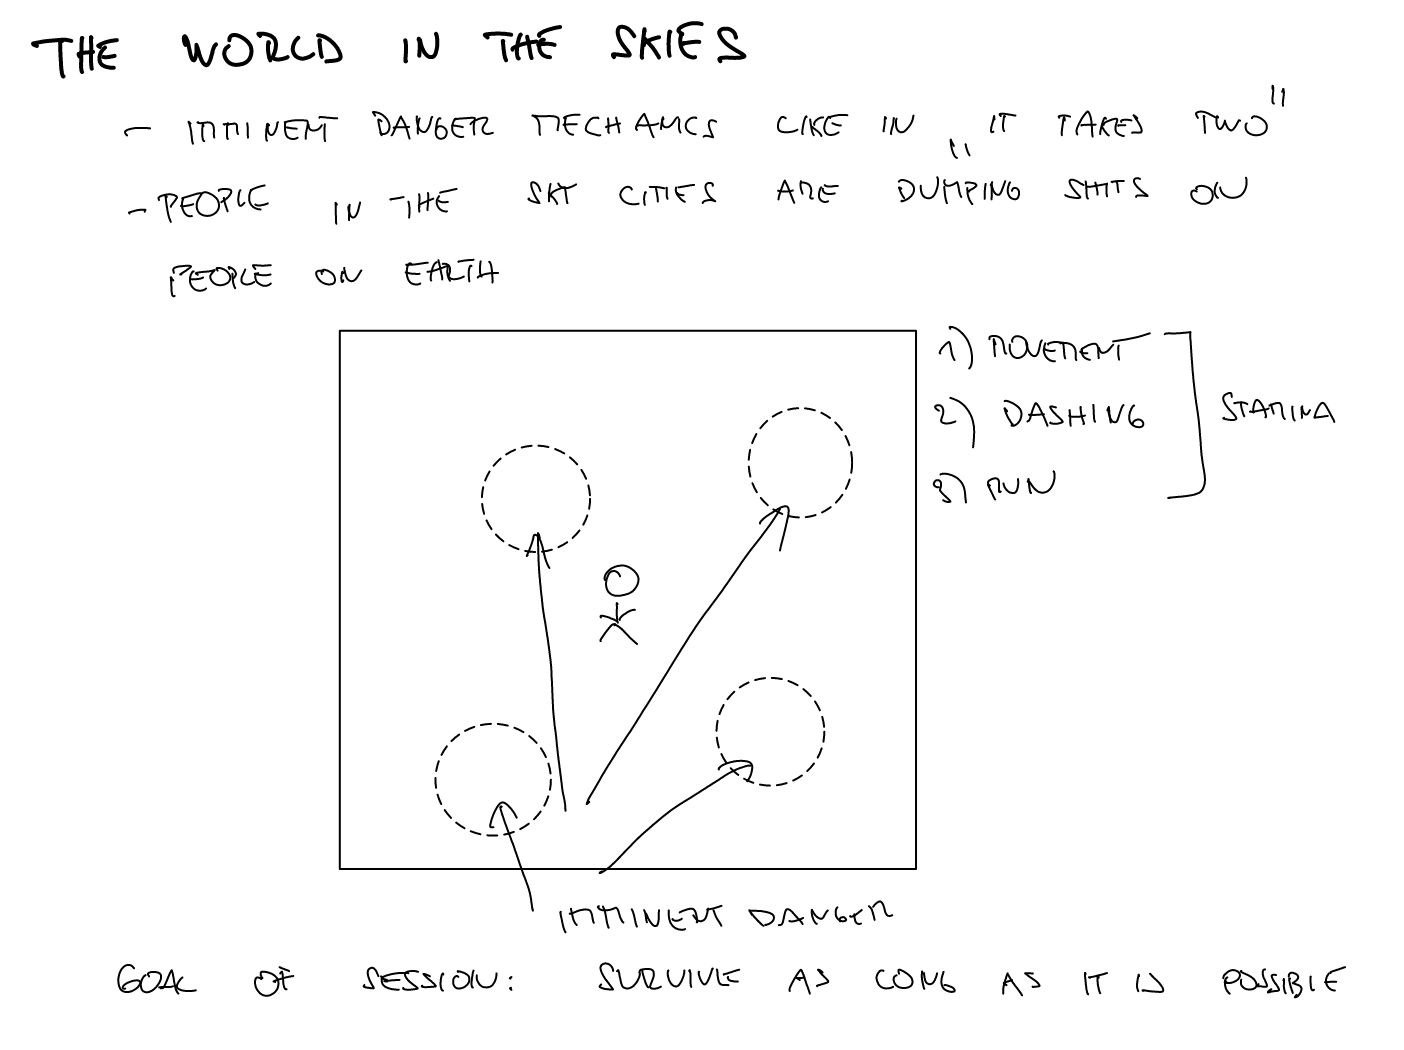 THE WORLD IN THE SKIES
- IMMINENT DANGER MECHANICS LIKE IN „IT TAKES TWO"
- PEOPLE IN THE SKY CITIES ARE DUMPING SHITS ON
PEOPLE ON EARTH
1) MOVEMENT
2) DASHING
STAMINA
3) RUN
IMMINENT DANGER
GOAL OF SESSION: SURVIVE AS LONG AS IT IS POSSIBLE